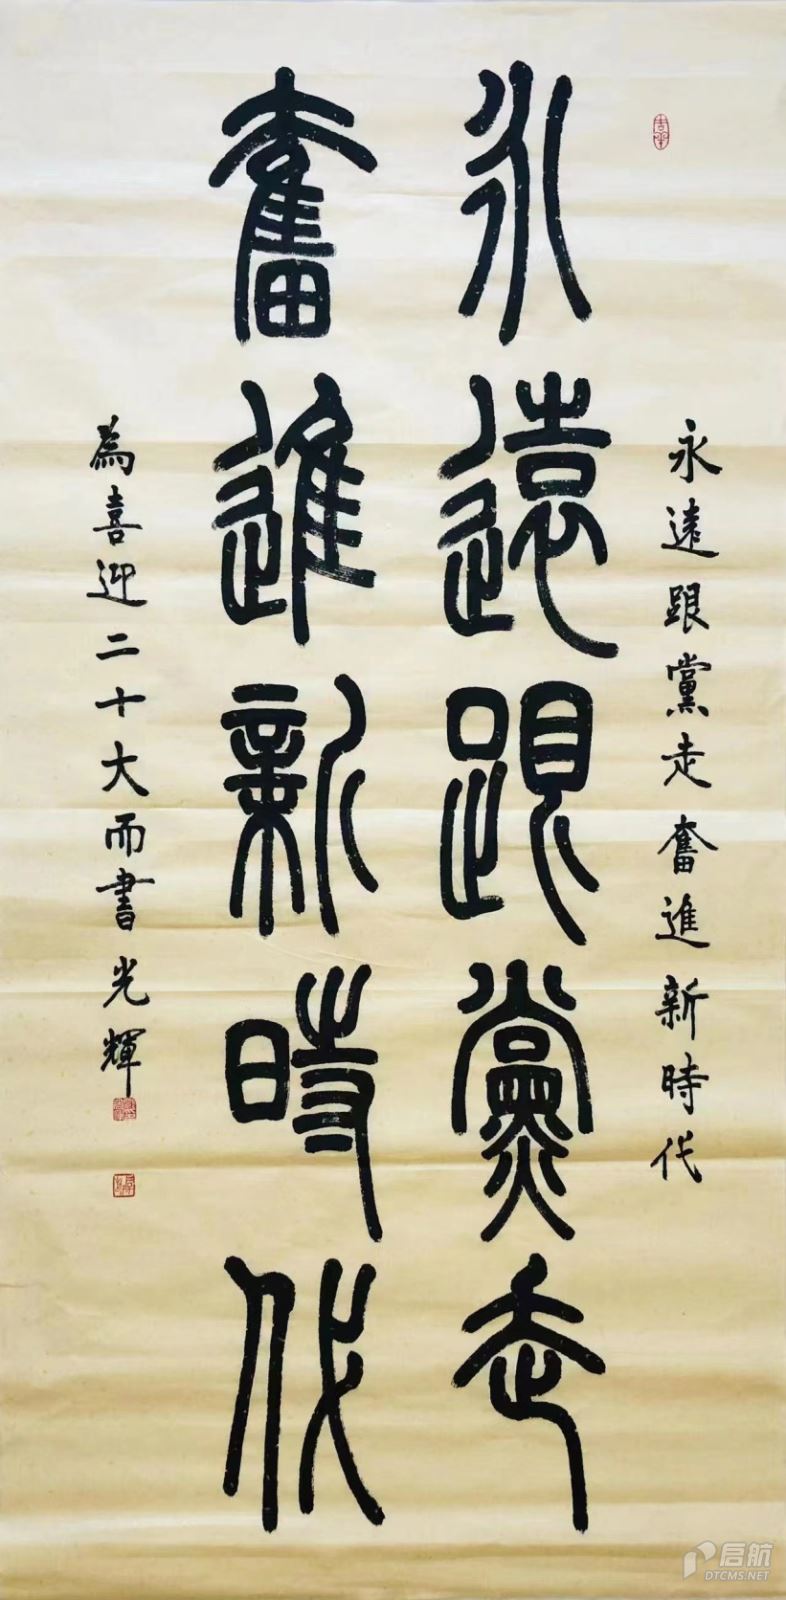 永遠跟黨走
奮進新時代
永遠跟黨走奮進新時代
為喜迎二十大而書光輝
启航
DTCMS.NET